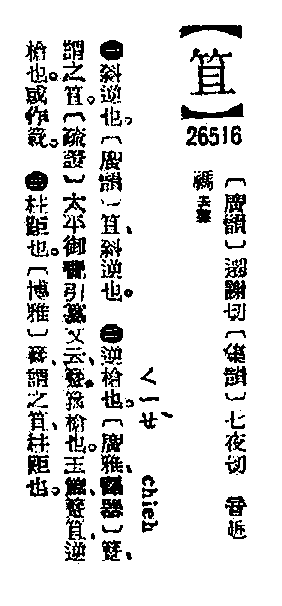 【笡】
26516
〔廣韻〕遷謝切〔集韻〕七夜切音
禡去聲
ㄑㄧㄝˋ chieh
㊀斜逆也。〔廣韻〕笡斜逆也。㊁逆槍也。〔廣雅釋器〕
謂之笡〔疏證〕太平御覽引纂文云槍也王笡逆
槍也。或作㊂柱距也。〔博雅〕謂之笡柱距也。